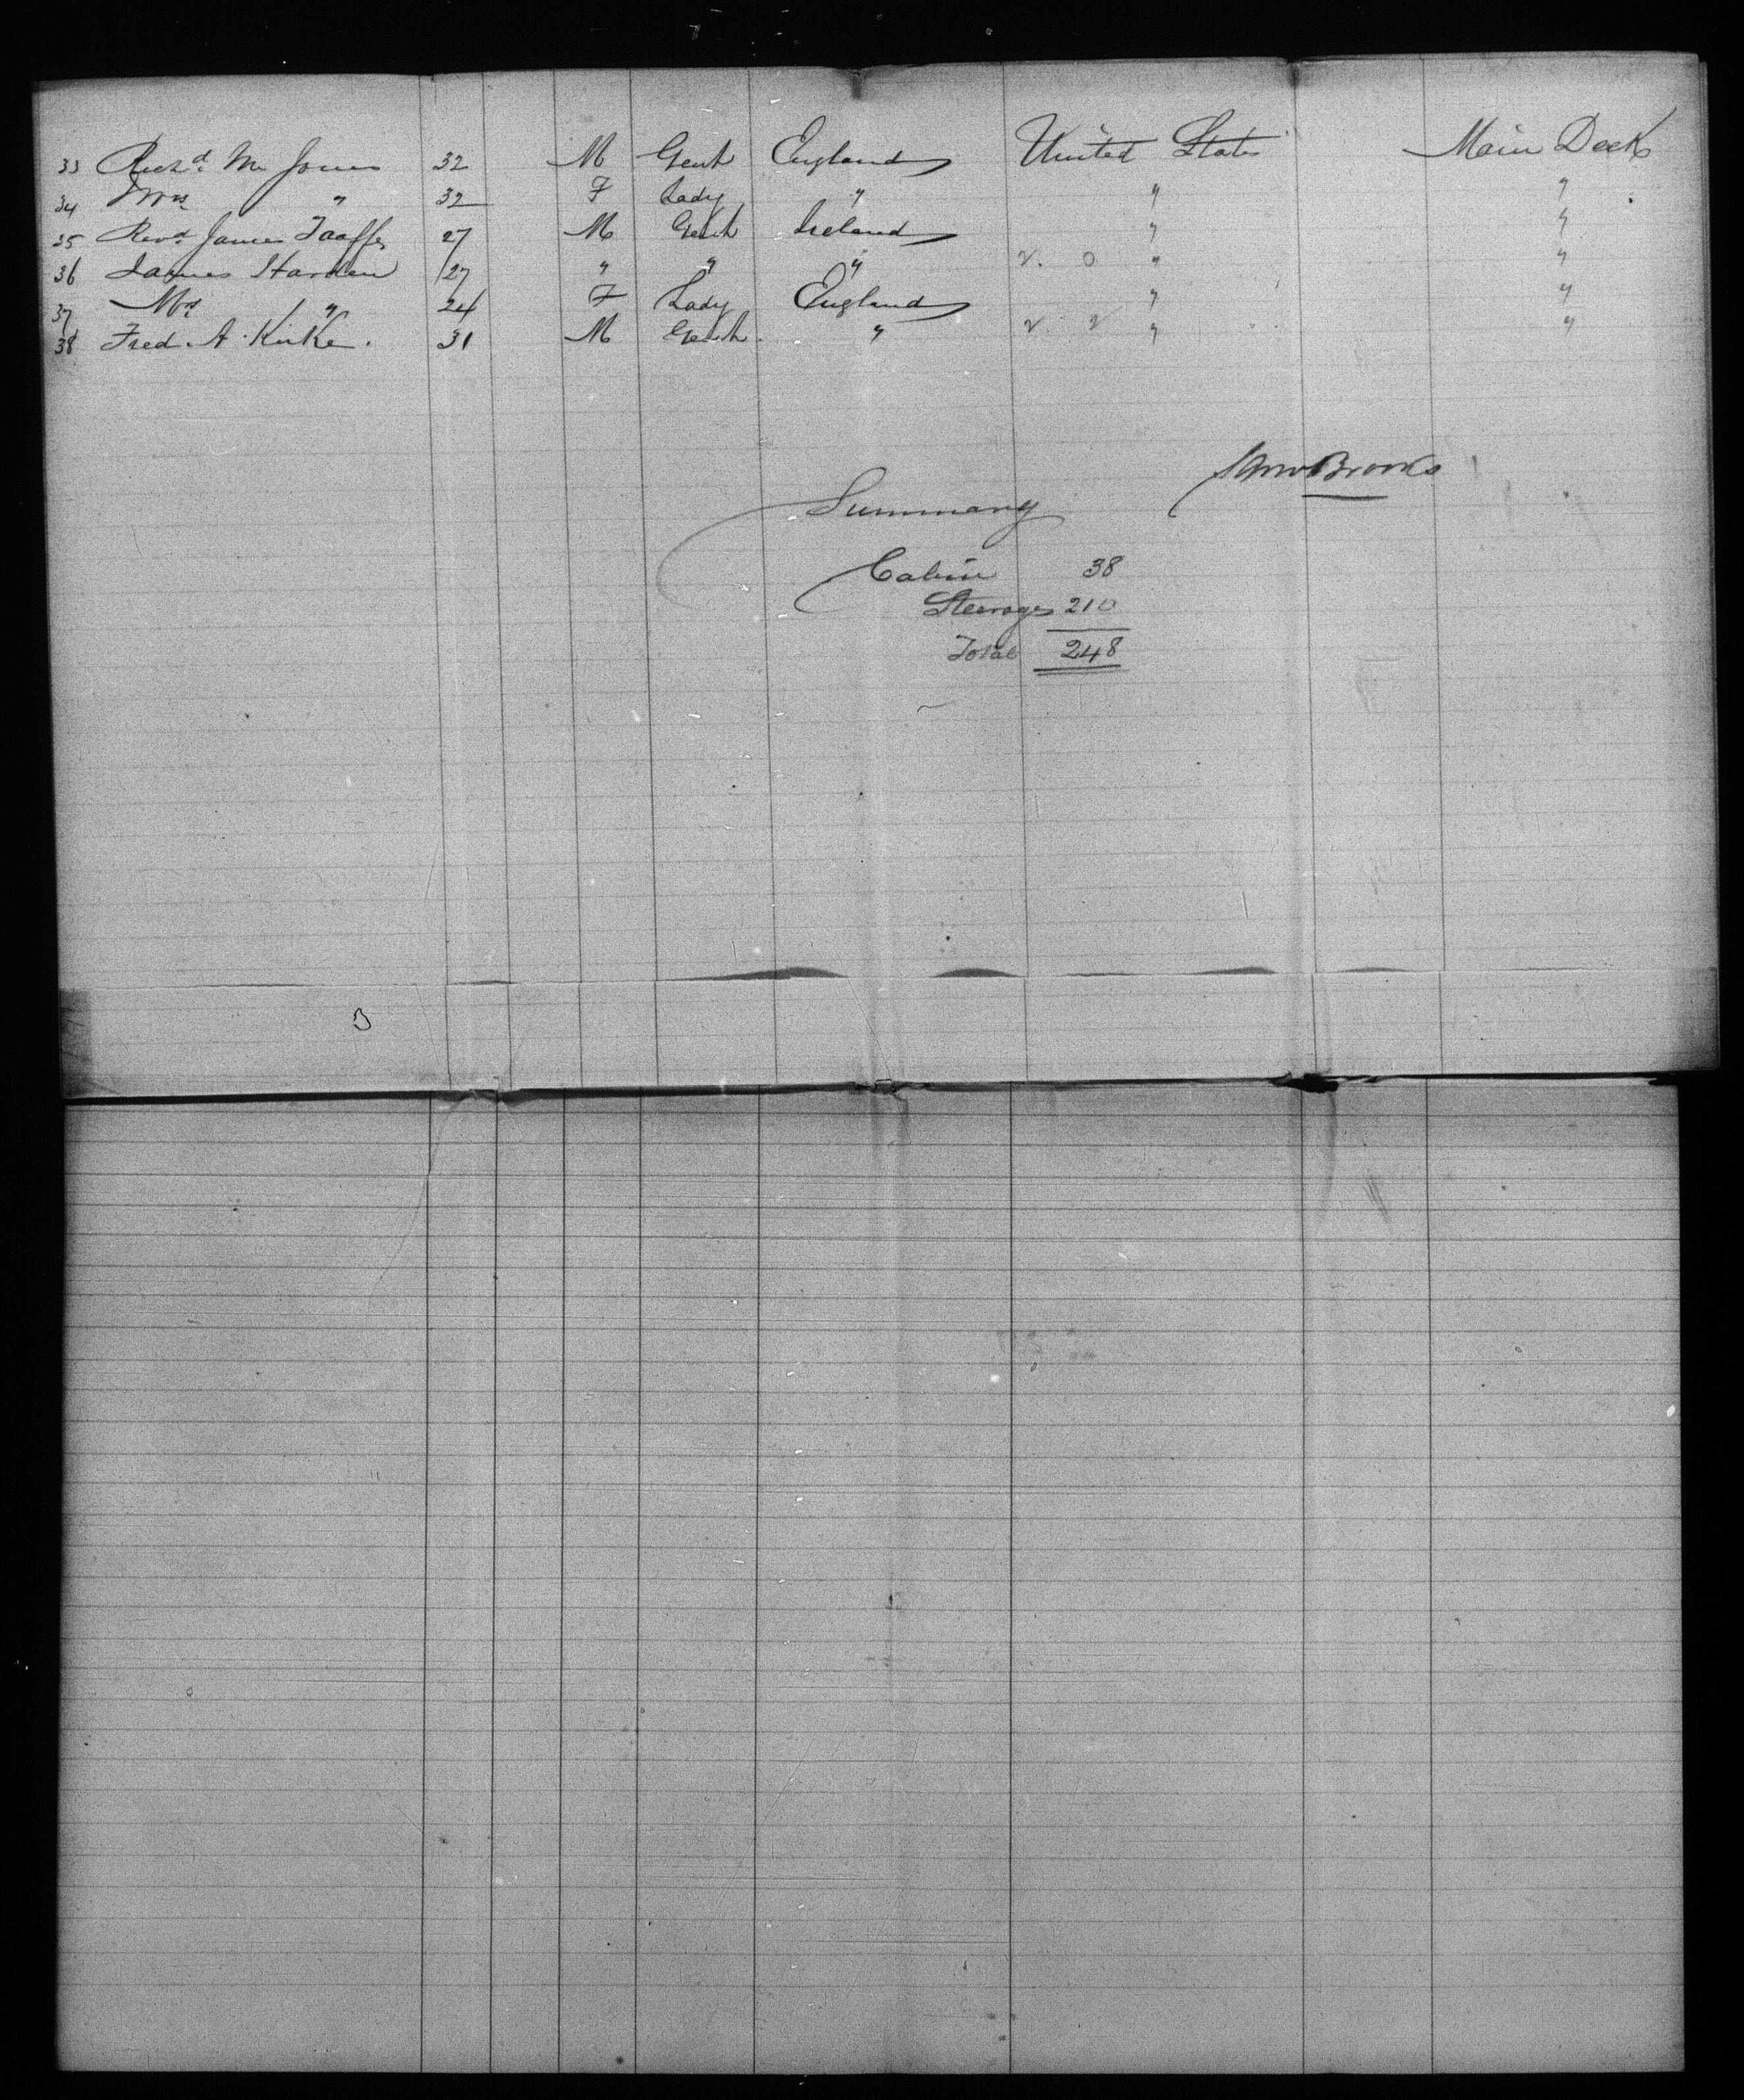 33 Richd. M. Jones 32 M Gent England United States Main Deck
34 Mrs " 32 F Lady " " "
35 Revd. James Taaffe 27 M Gent Ireland " "
36 James Harden 27 " " " " "
37 Mrs " 24 F Lady England " "
38 Fred. A. Kirke. 31 M Gent. " " "
Brooks
Summary
Cabin 38
Steerage 210
Total 248